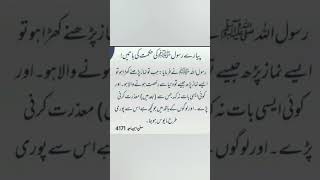 پیارے رسول ﷺ کی حکمت کی باتیں!
رسول اللہ ﷺ نے فرمایا: جب تو نماز پڑھنے کھڑا ہو تو
ایسے نماز پڑھ جیسے تو دنیا سے رخصت ہونے والا ہو۔ اور
کوئی ایسی بات نہ کہہ جس سے (بعد میں) معذرت کرنی
پڑے۔ اور لوگوں کے ہاتھ میں جو کچھ ہے اس سے پوری
طرح مایوس ہو جا۔
سنن ابن ماجہ 4171
رسول اللہ ﷺ
کھڑا ہو تو
ایسے نماز پڑھ جیسے
والا ہو۔ اور
کوئی ایسی بات نہ
معذرت کرنی
پڑے۔ اور لوگوں کے
اس سے پوری